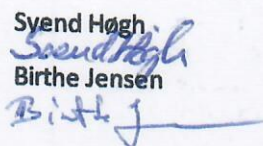 Syend Høgh
Svend Høgh
Birthe Jensen
Birthe J